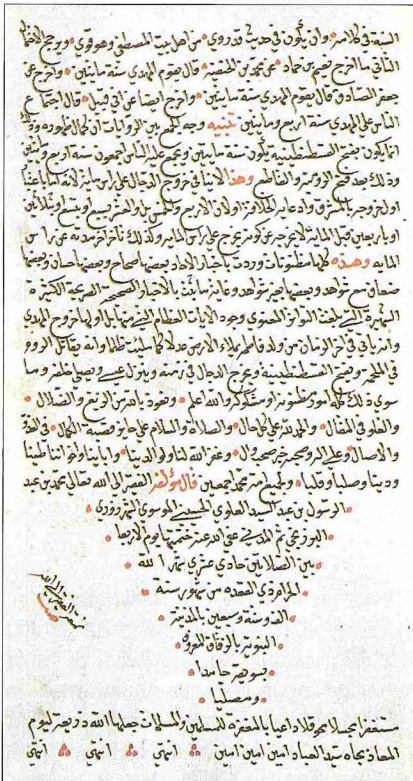 السنة في كلامه وان يكون في حديث قد روي من اهل بيت المصطفى وهو قوي ويرجح الاحتمال
الثاني ما اخرج نعيم بن حماد عن محمد بن الحنفية قال يقوم المهدي سنة مايتين واخرج عن
جعفر الصادق قال يقوم المهدي سنة مايتين واخرج ايضا عن ابي قبيل قال اجتماع
الناس على المهدي سنة اربع ومايتين تنبيه وجه الجمع بين الروايات ان كمال ظهوره
انما يكون بفتح القسطنطينية يكون سنة مايتين ويجتمع عليه الناس اجمعون سنة اربع ومايتين
وذلك بعد فتح الرومية والقاطع وهذا لا ينافي خروج الدجال على راس ماية لانه
اول خروجه بالمشرق وادعايه الخلافة اولا لان الاربع والخمس بل والعشر
او باربعين قبل الماية لا يخرجه عن كونه خرج على راس الماية وكذلك
الماية وهذه كلها مظنونات وردت باخبار الاحاد بعضها صحاح وبعضها حسان وبعضها
ضعاف مع شواهد وبعضها بغير شواهد وغاية ما ثبت بالاخبار الصحيحة الصريحة الكثيرة
الشهيرة التي بلغت التواتر المعنوي وجود الايات العظام التي منها بل اولها خروج المهدي
وانه ياتي في اخر الزمان من ولد فاطمة يملاء الارض عدلا كما مليت ظلما وانه يقاتل الروم
في الملحمة ويفتح القسطنطينية ويخرج الدجال في زمنه وينزل عيسى ويصلي خلفه وما
سوى ذلك كله امور مظنونة او مشكوكة والله اعلم ونعوذ بالله من الزيغ والضلال
والغلو في المقال والحمد لله على كل حال والصلاة والسلام على حايز قصبة الكمال في الغدو
والاصال وعلى اله وصحبه خير صحب وال وغفر الله لنا ولوالدينا ولابائنا واخواننا طينا
ودينا وصلبا وقلبا ولجميع امة محمد اجمعين قال مؤلفه الفقير الى الله تعالى محمد بن عبد
الرسول بن عبد السيد العلوي الحسيني الموسوي الشهرزوري
البرزنجي ثم المدني عفي الله عنه ختمتها يوم الاربعا
بين الصلاتين حادي عشري شهر الله
الحرام ذي القعدة من شهور سنة
الف وسنة وسبعين بالمدينة
النبوية بالزقاق المعروف
بسويقة حامدا
ومصليا
مستغفرا محسبلا محوقلا داعيا بالمغفرة للمسلمين والمسلمات جعلها الله ذريعة ليوم
المعاد بجاه سيد العباد امين امين امين انتهى انتهى انتهى